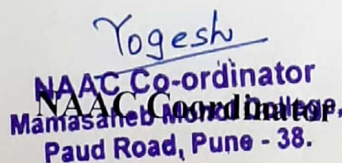 Yogesh
NAAC Co-ordinator
NAAC Coordinator
Mamasaheb Mohol College,
Paud Road, Pune - 38.